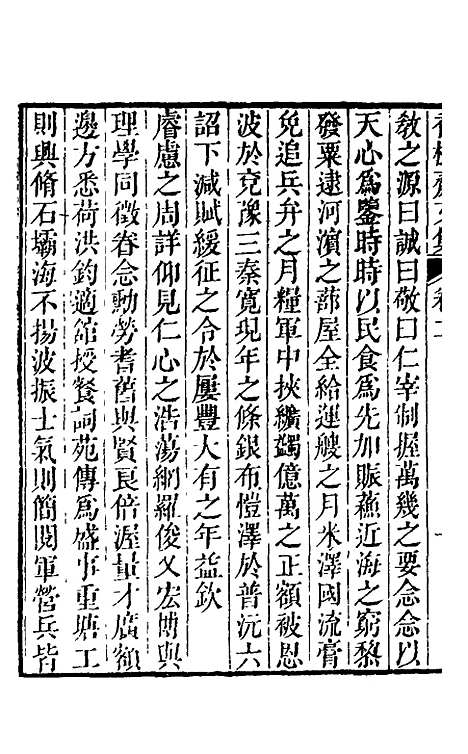 教之源曰誠曰敬曰仁宰制握萬幾之要念念以
天心爲鑒時時以民食爲先加賑蘸近海之窮黎
發粟逮河濵之蔀屋全給運艘之月米澤國流膏
免追兵弁之月糧軍中挾纊蠲億萬之正額被恩
波於兗豫三秦寛現年之條銀布愷澤於普沅六
詔下減賦緩征之令於屢豐大有之年益欽
睿慮之周詳仰見仁心之浩蕩網羅俊乂宏博與
理學同徵眷念勳勞耆舊與賢良倍渥量才廣額
邊方悉荷洪鈞適舘授餐詞苑傳爲盛事重塘工
則興脩石壩海不揚波振士氣則簡閱軍營兵皆